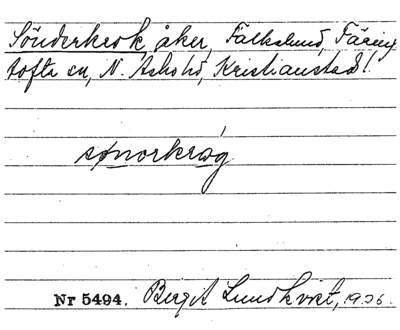 Sönderkrok, åker, Falkslund, Färing-
tofta sn, N. Åsbo hd, Kristianstads l.
sønorkråg
Nr 5494. Birgit Lundkvist, 1936.